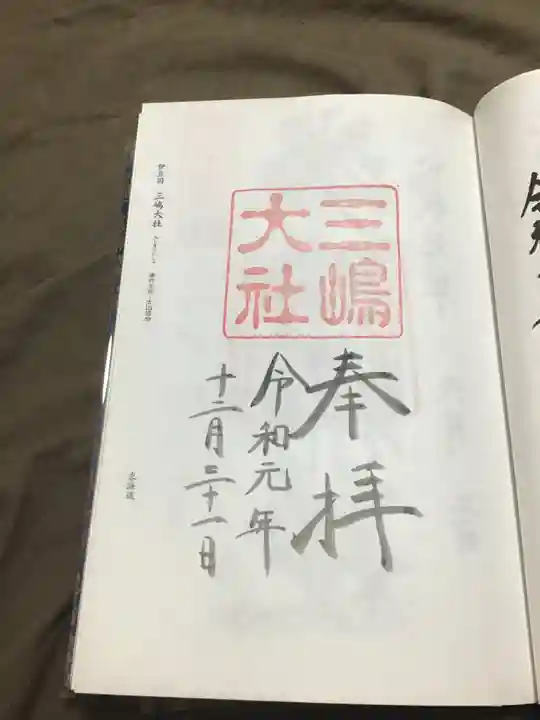 三嶋
大社
奉拝
令和元年
十二月三十一日
伊豆国 三嶋大社
東海道